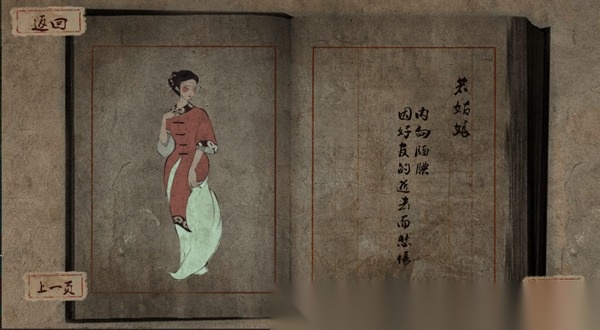 返回
姑娘
内向腼腆
因好友的逝去而悲伤
上一页